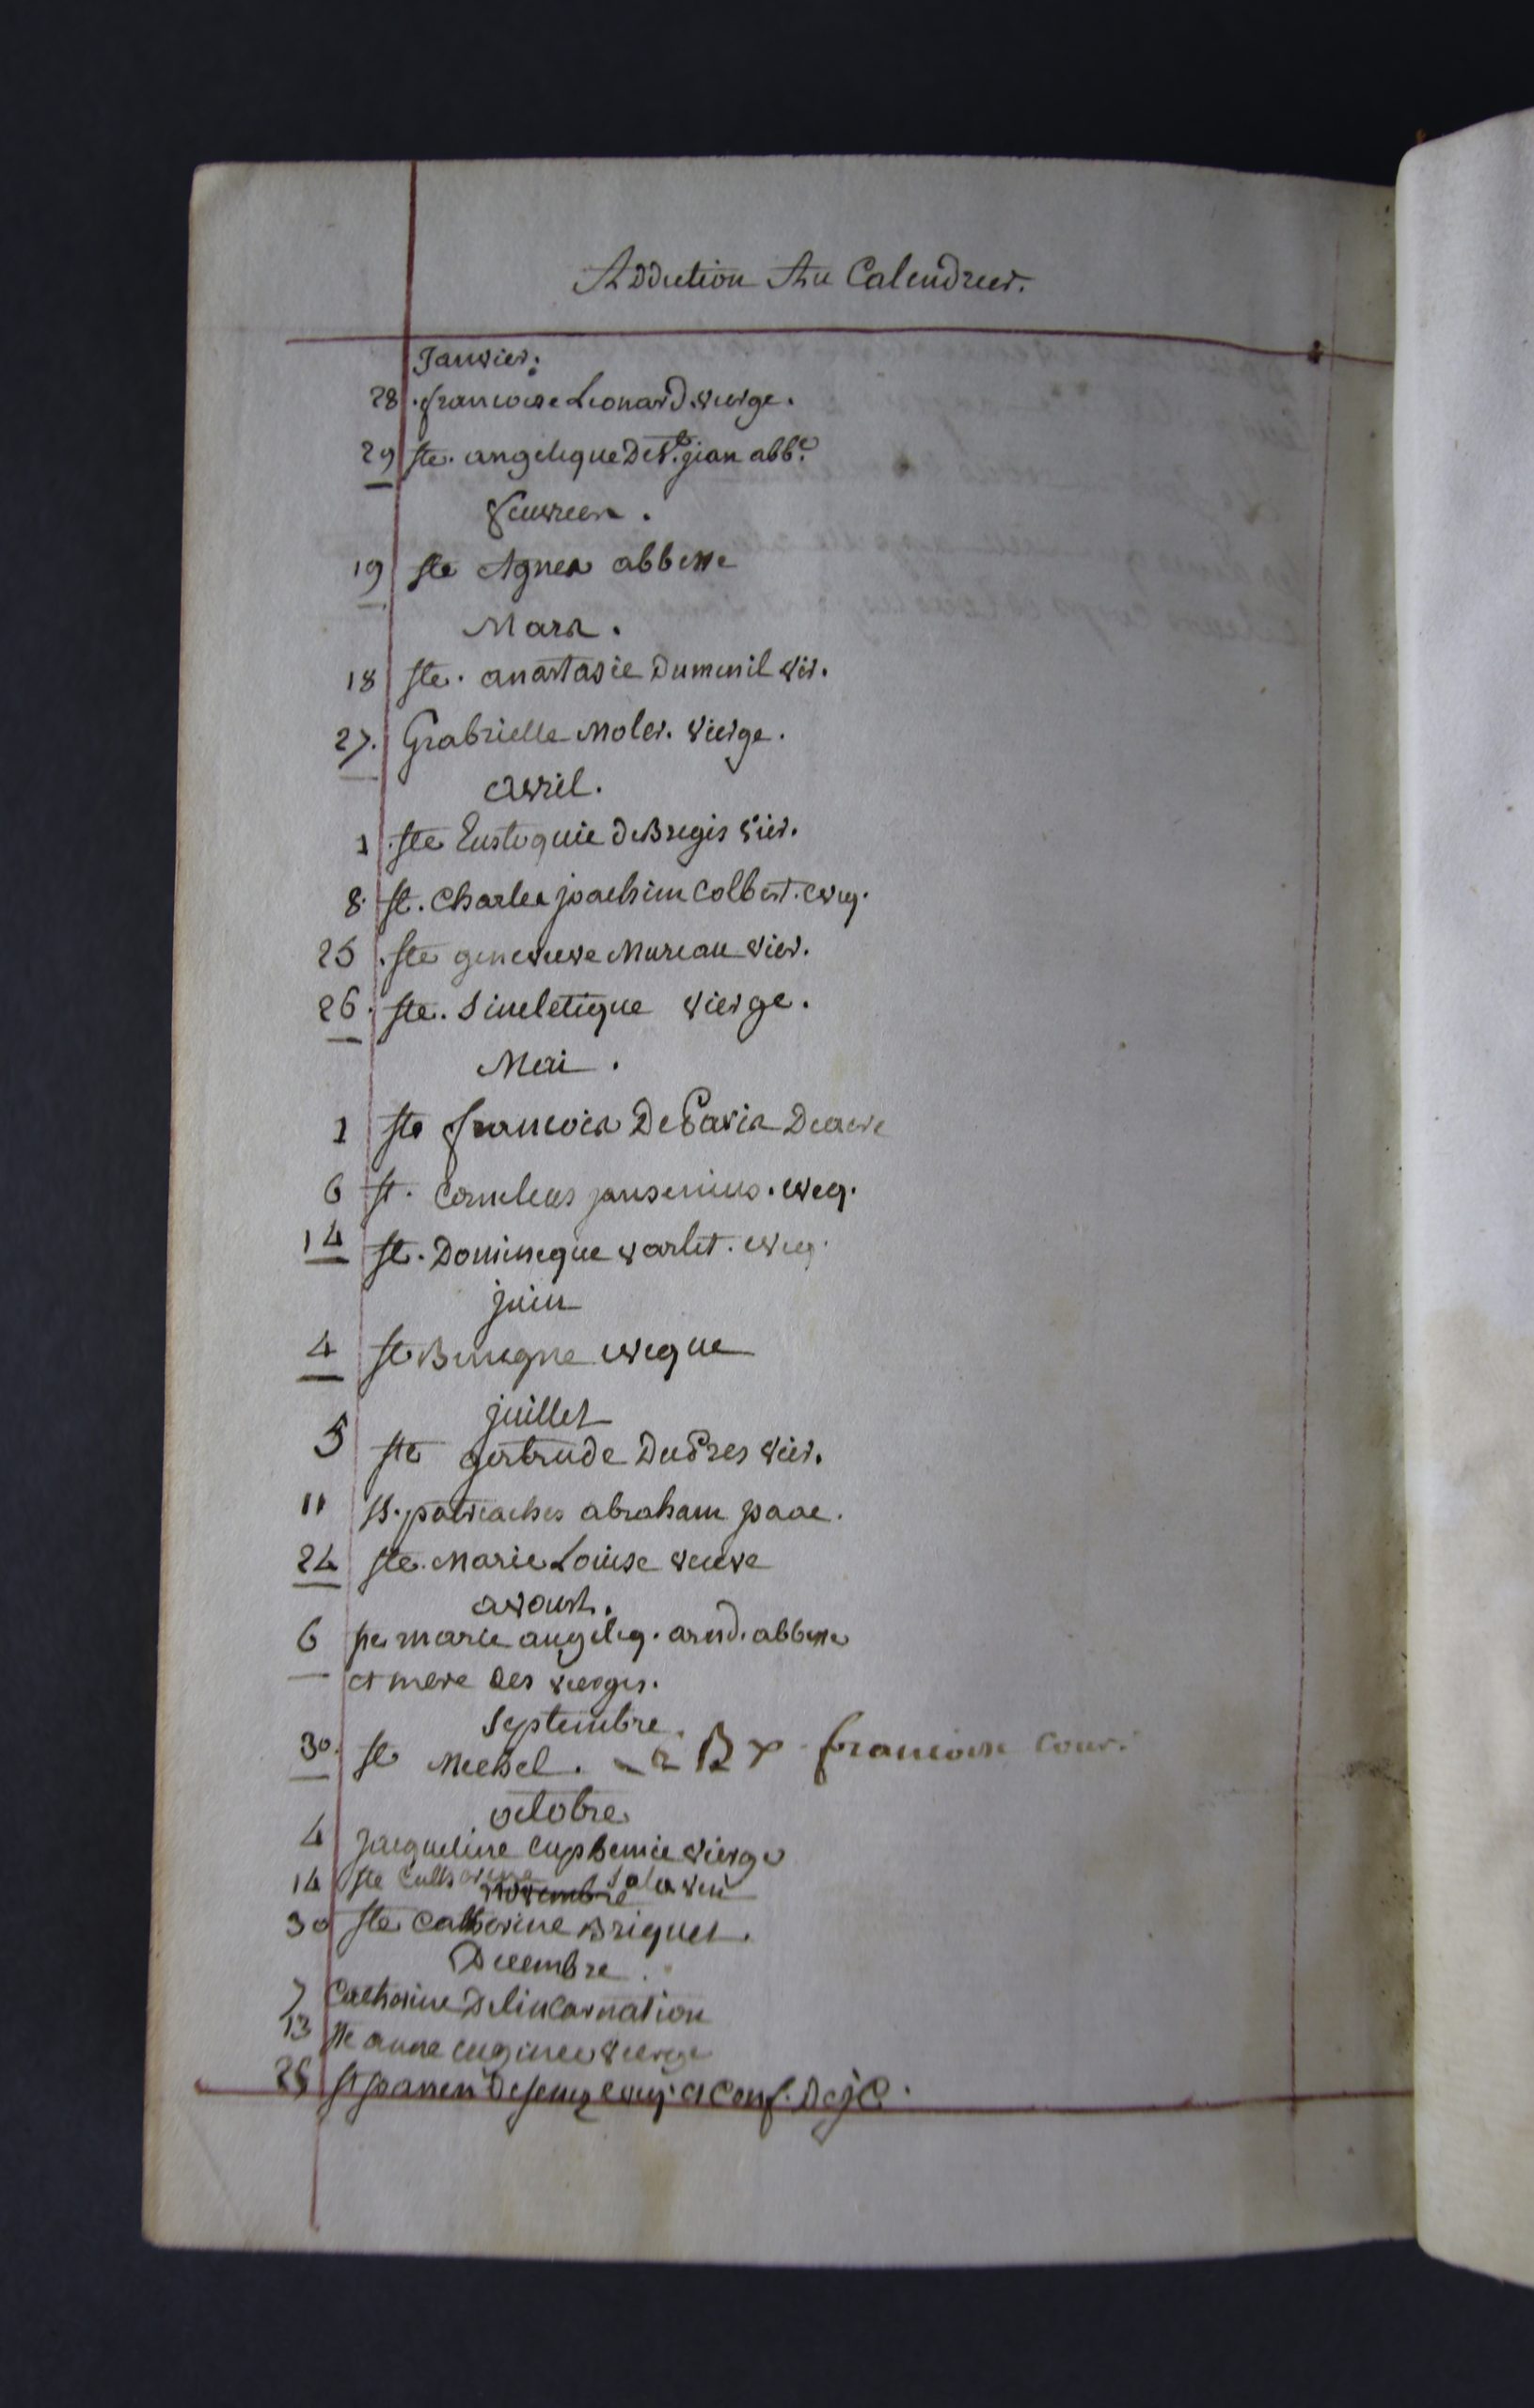 Addition Au Calendrier.
Janvier.
28 francoise Leonard vierge.
29 ste. angelique De St. jean abb.e
fevrier.
19 ste Agnes abbesse
Mars.
18 ste. anastasie Dumenil vir.
27. Gabrielle Moler. vierge.
avril.
1 ste Eustoquie de Bregis vier.
8. st. Charles joachim Colbert. eveq.
25 ste genevieve Mureau vier.
26. ste. Sincletique vierge.
Mai.
1 st francois De Paris Diacre
6 st. Cornelius jansenius. eveq.
14 st. Dominique varlet. eveq.
juin
4 st Benigne eveque
juillet
5 ste gertrude DuPres vier.
11 ss. patriaches abraham isaac.
24 ste. Marie Louise veuve
avoust.
6 marie angeliq. arnd. abbesse
et mere des vierges.
Septembre.
30. st Michel. francois
octobre
4 jacqueline euphemie vierge
14 ste Catherine
novembre
30 ste Catherine Briquet.
Decembre.
7 Catherine Delincarnation
13 ste anne eugenie vierge
25 st De Senez eveq. et Conf. De J C.